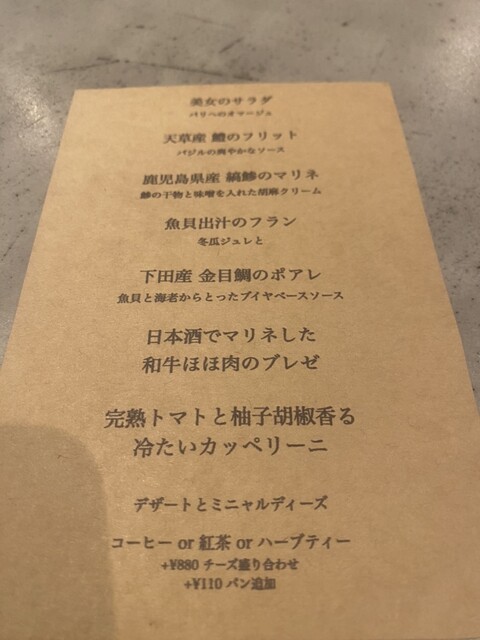 美女のサラダ
パリへのオマージュ
天草産 鱧のフリット
バジルの爽やかなソース
鹿児島県産 縞鯵のマリネ
鯵の干物と味噌を入れた胡麻クリーム
魚貝出汁のフラン
冬瓜ジュレと
下田産 金目鯛のポアレ
魚貝と海老からとったブイヤベースソース
日本酒でマリネした
和牛ほほ肉のブレゼ
完熟トマトと柚子胡椒香る
冷たいカッペリーニ
デザートとミニャルディーズ
コーヒー or 紅茶 or ハーブティー
+¥880 チーズ盛り合わせ
+¥110 パン追加